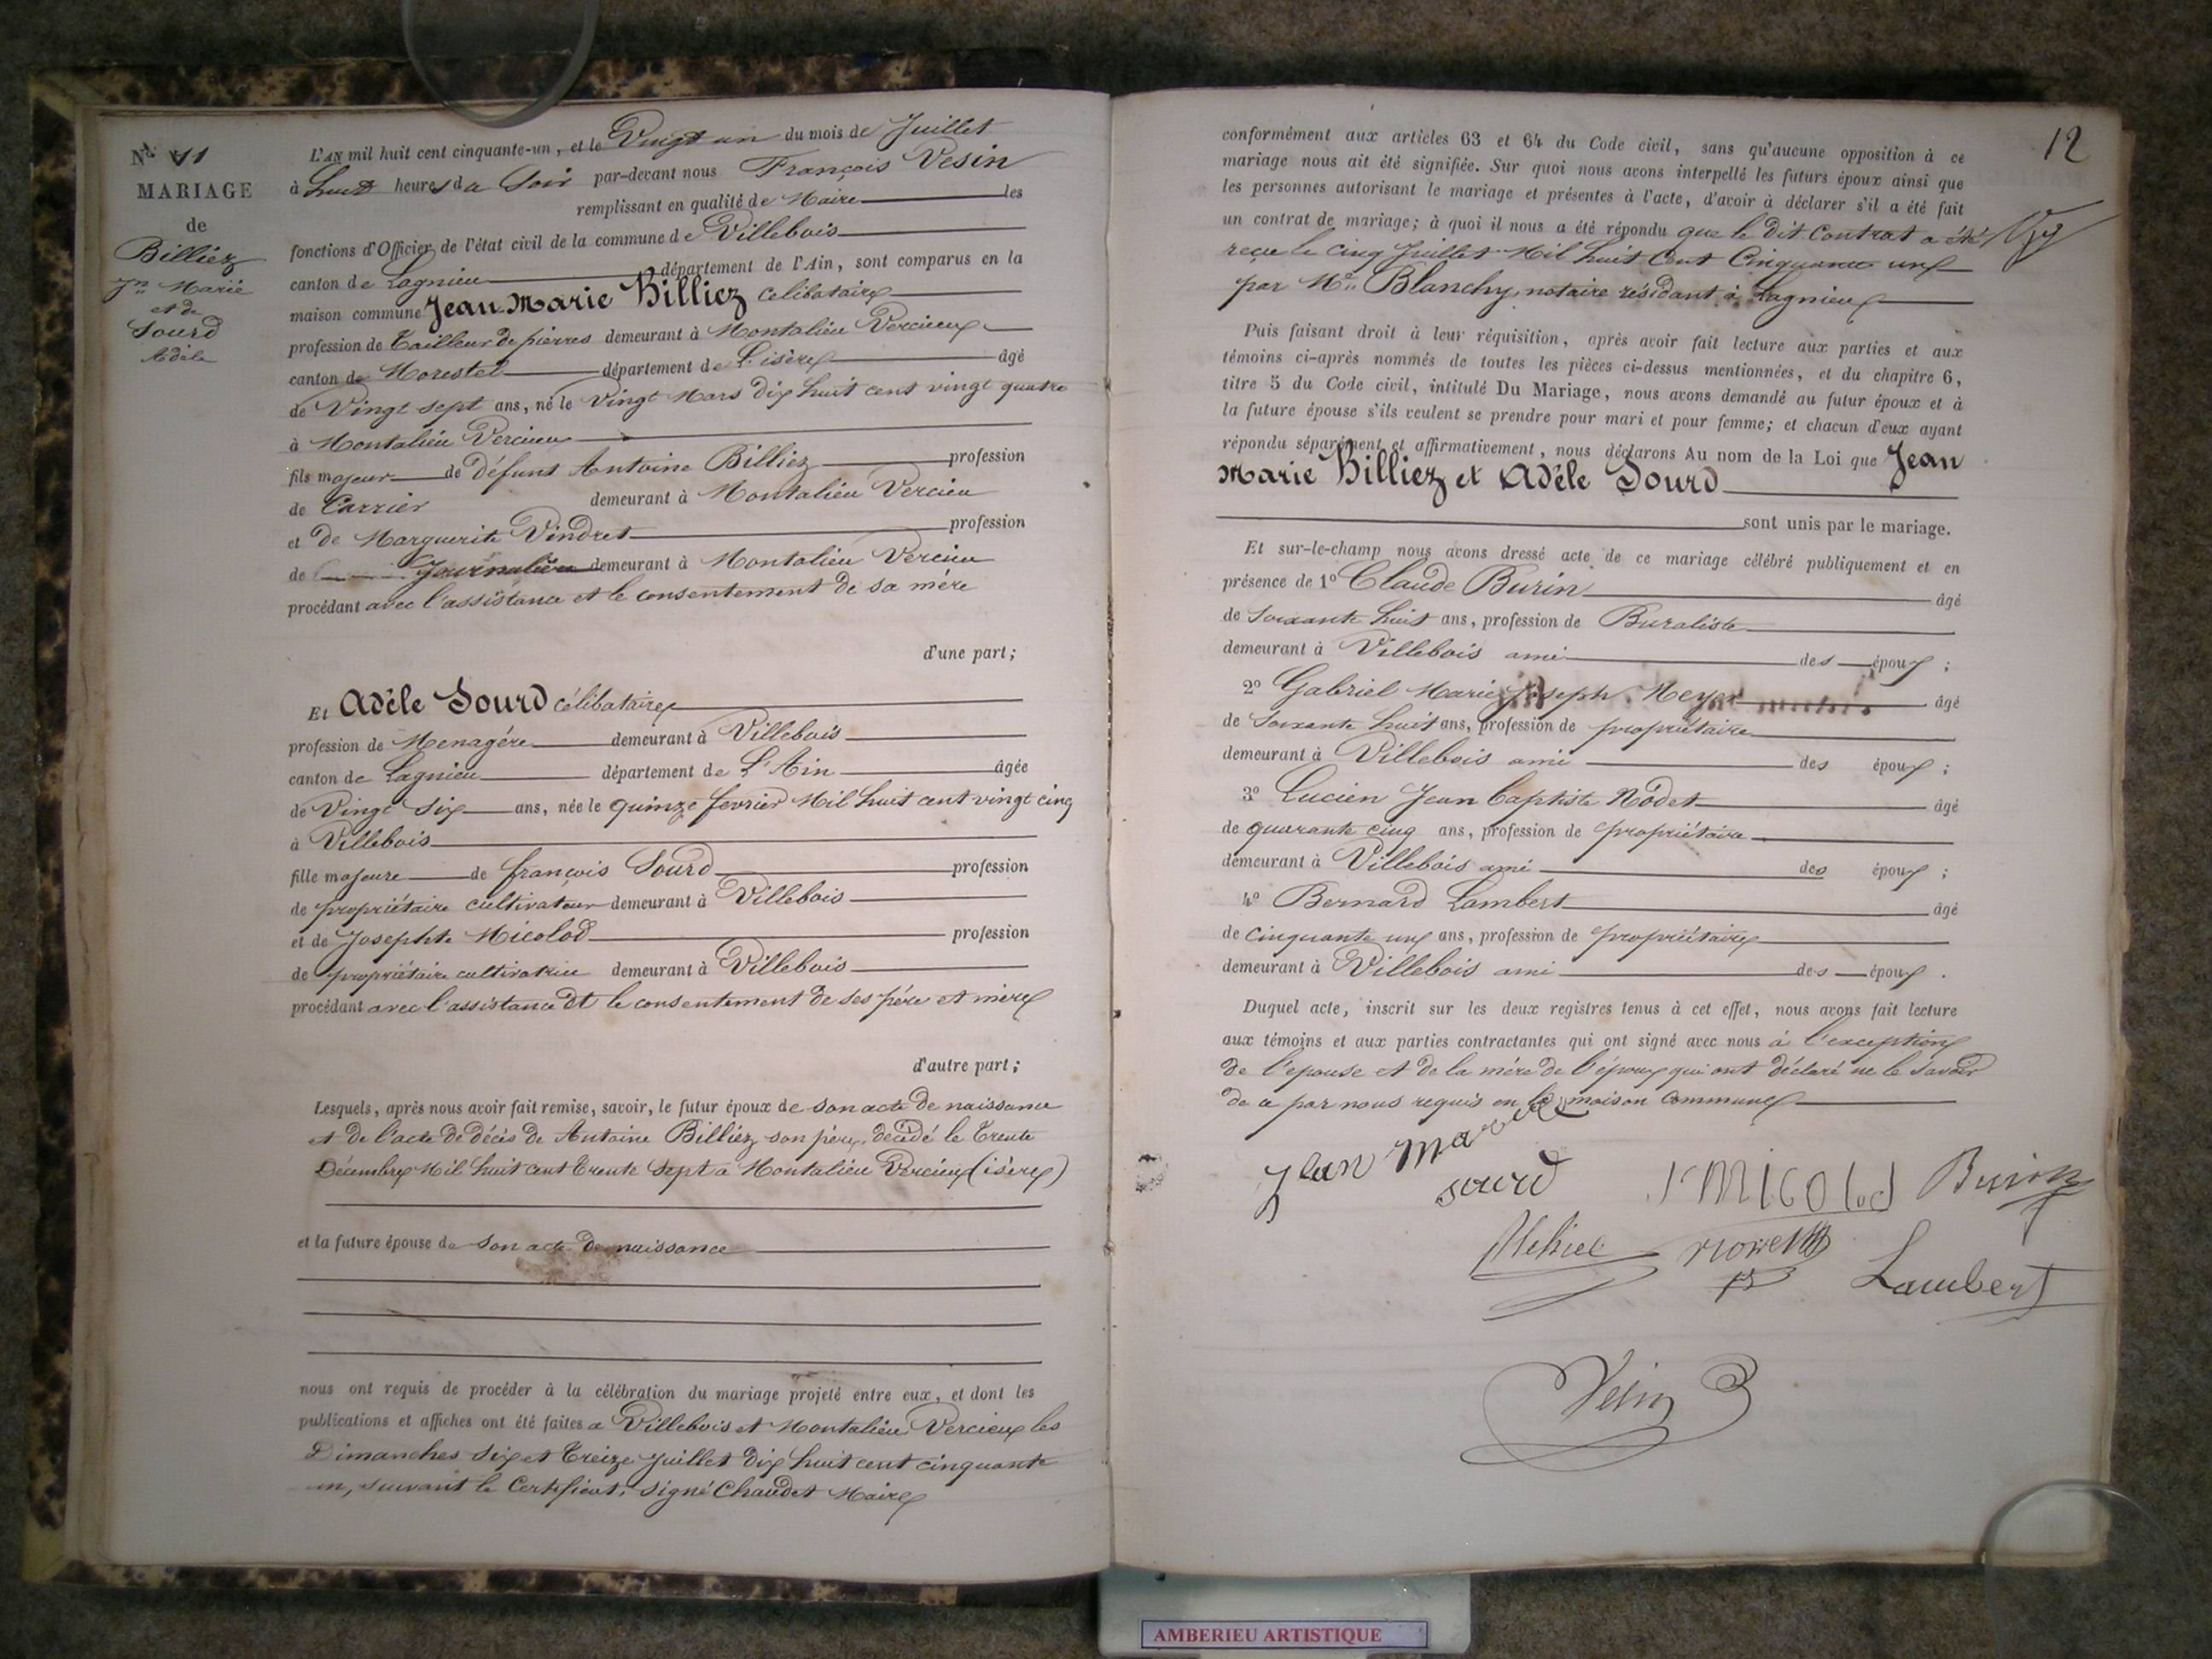 N° 11
MARIAGE
de
Billiez
Jn Marie
et de
Sourd
Adèle
L'AN mil huit cent cinquante-un, et le Vingt un du mois de Juillet
à huit heures du Soir par-devant nous François Vesin
remplissant en qualité de Maire les
fonctions d'Officier de l'état civil de la commune de Villebois
canton de Lagnieu département de l'Ain, sont comparus en la
maison commune Jean Marie Billiez célibataire
profession de Tailleur de pierres demeurant à Montalieu Vercieux
canton de Morestel département de L'isère âgé
de Vingt sept ans, né le Vingt Mars dix huit cent vingt quatre
à Montalieu Vercieu
fils majeur de Défunt Antoine Billiez profession
de Carrier demeurant à Montalieu Vercieu
et de Marguerite Vindret profession
de Journalière demeurant à Montalieu Vercieu
procédant avec l'assistance et le consentement de sa mère
d'une part;
Et Adèle Sourd célibataire
profession de Menagére demeurant à Villebois
canton de Lagnieu département de L'Ain âgée
de Vingt Six ans, née le quinze fevrier Mil huit cent vingt cinq
à Villebois
fille majeure de françois Sourd profession
de propriétaire cultivateur demeurant à Villebois
et de Josephte Micolod profession
de propriétaire cultivatrice demeurant à Villebois
procédant avec l'assistance et le consentement de ses père et mère
d'autre part;
Lesquels, après nous avoir fait remise, savoir, le futur époux de son acte de naissance
et de l'acte de décès de Antoine Billiez son père, décédé le trente
Décembre Mil huit cent trente sept à Montalieu Vercieux (isère)
et la future épouse de son acte de naissance
nous ont requis de procéder à la célébration du mariage projeté entre eux, et dont les
publications et affiches ont été faites a Villebois et Montalieu Vercieux les
Dimanches six et treize Juillet dix huit cent cinquante
un, suivant le Certificat, signé Chaudet Maire
12
conformément aux articles 63 et 64 du Code civil, sans qu'aucune opposition à ce
mariage nous ait été signifiée. Sur quoi nous avons interpellé les futurs époux ainsi que
les personnes autorisant le mariage et présentes à l'acte, d'avoir à déclarer s'il a été fait
un contrat de mariage; à quoi il nous a été répondu que le dit Contrat a été
reçu le cinq Juillet Mil huit Cent Cinquante un
par Me Blanchy notaire résidant à Lagnieu
Puis faisant droit à leur réquisition, après avoir fait lecture aux parties et aux
témoins ci-après nommés de toutes les pièces ci-dessus mentionnées, et du chapitre 6,
titre 5 du Code civil, intitulé Du Mariage, nous avons demandé au futur époux et à
la future épouse s'ils veulent se prendre pour mari et pour femme; et chacun d'eux ayant
répondu séparément et affirmativement, nous déclarons Au nom de la Loi que Jean
Marie Billiez et Adèle Sourd
sont unis par le mariage.
Et sur-le-champ nous avons dressé acte de ce mariage célébré publiquement et en
présence de 1° Claude Burin âgé
de Soixante huit ans, profession de Buraliste
demeurant à Villebois ami des époux ;
2° Gabriel Marie Joseph âgé
de Soixante huit ans, profession de propriétaire
demeurant à Villebois ami des époux ;
3° Lucien Jean baptiste Nodet âgé
de quarante cinq ans, profession de propriétaire
demeurant à Villebois ami des époux ;
4° Bernard Lambert âgé
de cinquante un ans, profession de propriétaire
demeurant à Villebois ami des époux .
Duquel acte, inscrit sur les deux registres tenus à cet effet, nous avons fait lecture
aux témoins et aux parties contractantes qui ont signé avec nous à l'exception
de l'epouse et de la mère de l'époux qui ont déclaré ne le savoir
de ce par nous requis en la maison Commune
Jean Marie
sourd
Micolod
Burin
Lambert
Vesin
AMBERIEU ARTISTIQUE